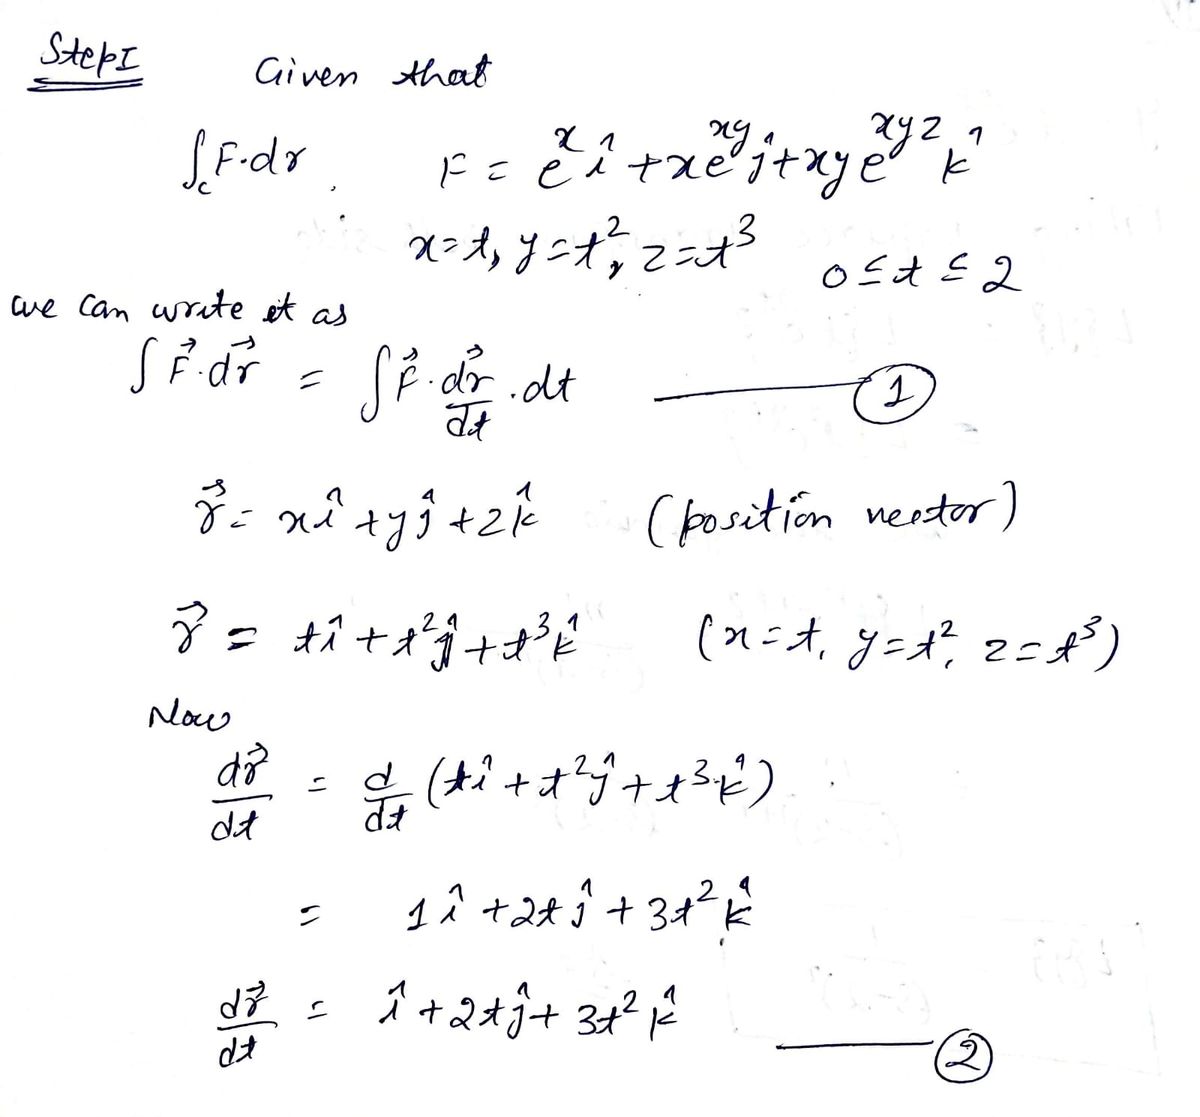 Step I Given that
∫_c F·dr, F = e^x î + xe^{xy} ĵ + xye^{xyz} k̂
x=t, y=t², z=t³ 0≤t≤2
we can write it as
∫ F⃗·dr⃗ = ∫ F⃗·dr⃗/dt .dt ——— ①
r⃗ = xî + yĵ + zk̂ (position vector)
r⃗ = tî + t²ĵ + t³k̂ (x=t, y=t², z=t³)
Now
dr⃗/dt = d/dt (tî + t²ĵ + t³k̂)
= 1î + 2tĵ + 3t²k̂
dr⃗/dt = î + 2tĵ + 3t²k̂ ——— ②